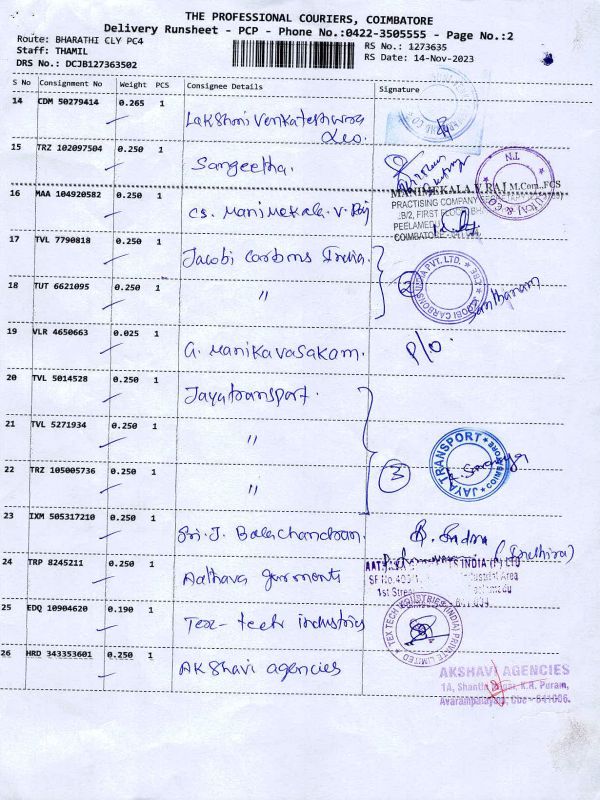 THE PROFESSIONAL COURIERS, COIMBATORE
Delivery Runsheet - PCP - Phone No.:0422-3505555 - Page No.:2
Route: BHARATHI CLY PC4
RS No.: 1273635
Staff: THAMIL
RS Date: 14-Nov-2023
DRS No.: DCJB127363502
S No Consignment No Weight PCS Consignee Details Signature
14 CDM 50279414 0.265 1 Lakshmi Venkateshwra
15 TRZ 102097504 0.250 1 Sangeetha.
MANIMEKALA.V.RAJ M.Com.,FCS
16 MAA 104920582 0.250 1 CS. Manimekala. V. Raj
PRACTISING COMPANY
B/2, FIRST FLOOR
PEELAMED
COIMBATORE
17 TVL 7790818 0.250 1 Jacobi Carbons India.
JACOBI CARBONS INDIA PVT. LTD.
18 TUT 6621095 0.250 1 " 2 Santhanam
19 VLR 4650663 0.025 1 G. Manikavasakam. P/O.
20 TVL 5014528 0.250 1 Jayatransport.
21 TVL 5271934 0.250 1 "
JAYA TRANSPORT
22 TRZ 105005736 0.250 1 " 3
23 IXM 505317210 0.250 1 Sri. J. Balachandran.
24 TRP 8245211 0.250 1 Aathava garments
INDIA (P) LTD
Industrial Area
1st Street
25 EDQ 10904620 0.190 1 Tex-tech industries
TEX TECH INDUSTRIES (INDIA) PRIVATE LIMITED
26 HRD 343353601 0.250 1 Akshavi agencies
AKSHAVI AGENCIES
1A, Shanthi Nagar, K.R. Puram,
Avarampalayam, Cbe - 641006.